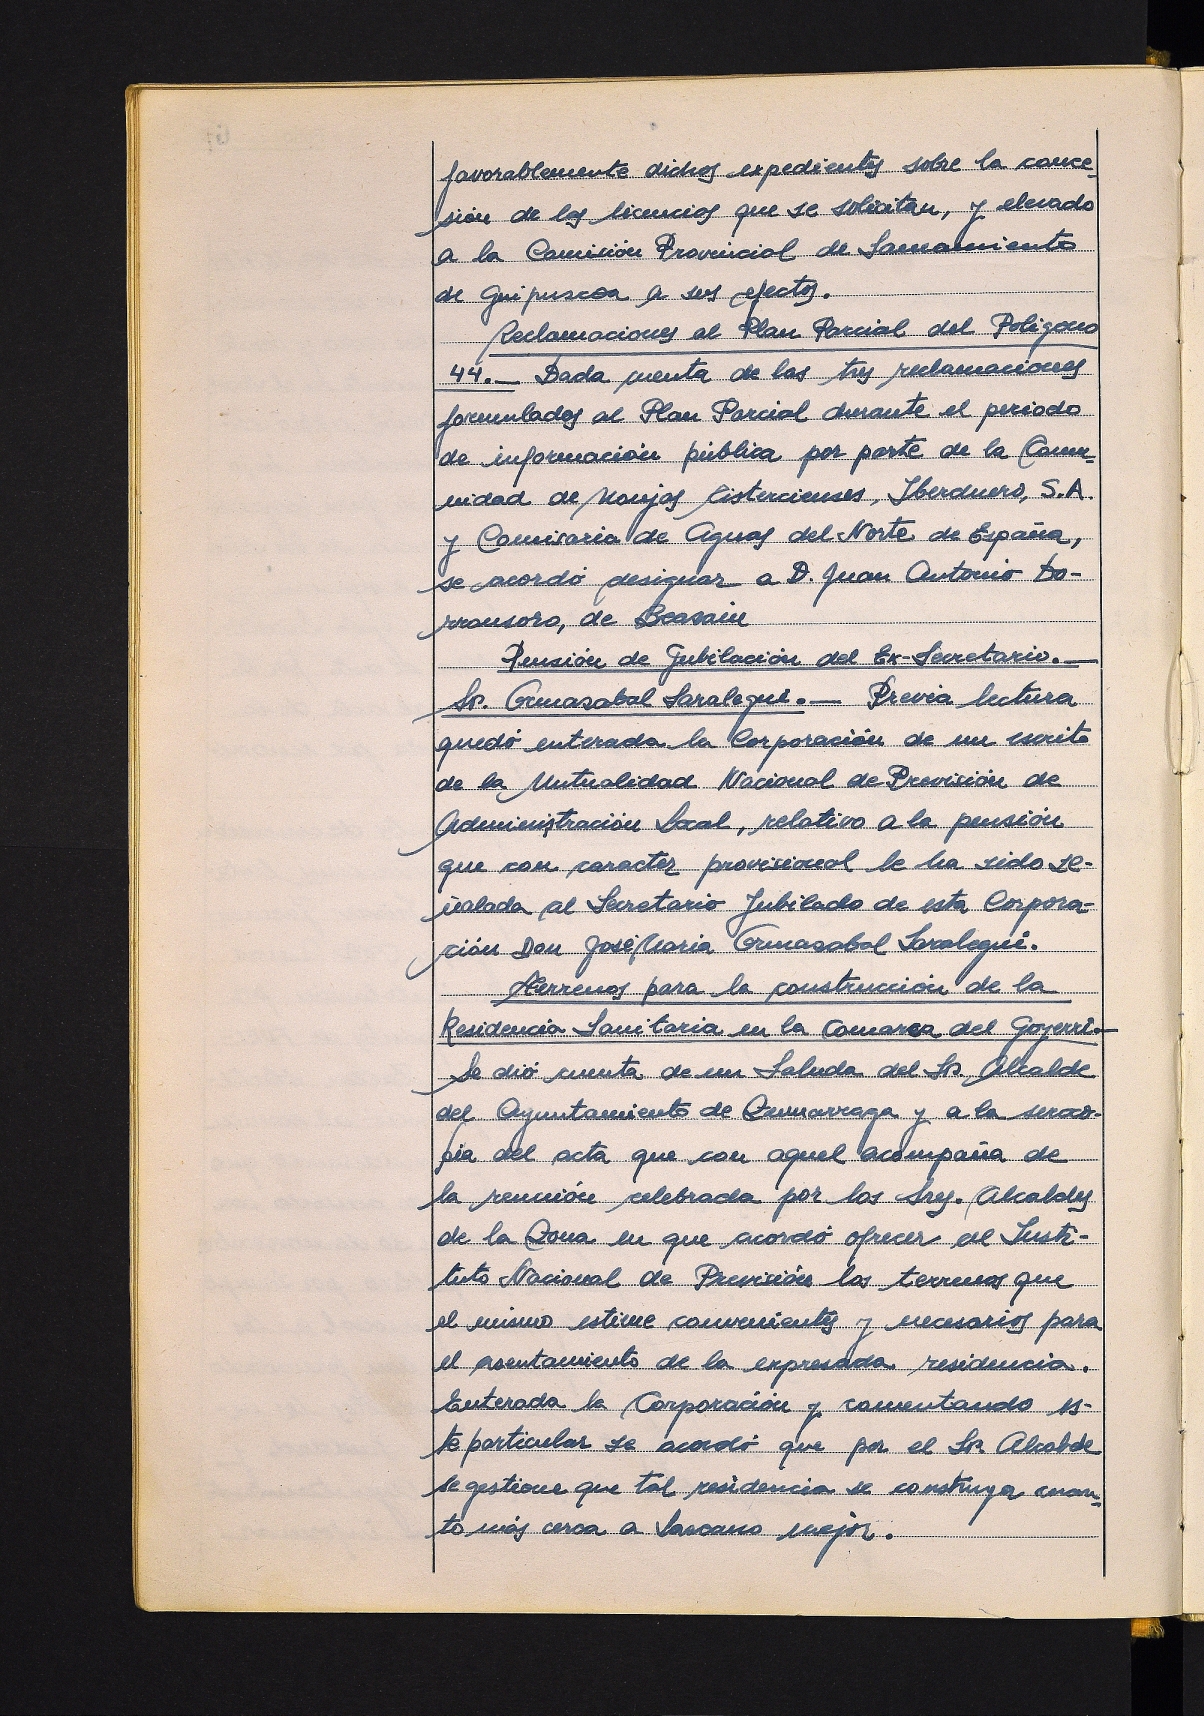 favorablemente dichos expedientes sobre la conce-
sión de las licencias que se solicitan, y elevado
a la Comisión Provincial de Saneamiento
de Guipuscoa a sus efectos.
Reclamaciones al Plan Parcial del Polígono
44.— Dada cuenta de las tres reclamaciones
formuladas al Plan Parcial durante el periodo
de información pública por parte de la Comu-
nidad de Monjas Cistercienses, Iberduero, S.A.
y Comisaria de Aguas del Norte de España,
se acordó designar a D. Juan Antonio Do-
rronsoro, de Beasain
Pensión de Jubilación del Ex-Secretario.—
Sr. Ormasabal Saralegui.— Previa lectura
quedó enterada la Corporación de un escrito
de la Mutualidad Nacional de Previsión de
Administración Local, relativo a la pensión
que con caracter provisional le ha sido se-
ñalada al Secretario Jubilado de esta Corpora-
ción Don José Maria Ormasabal Saralegui.
Terrenos para la construcción de la
Residencia Sanitaria en la Comarca del Goyerri.—
Se dió cuenta de un Saluda del Sr. Alcalde
del Ayuntamiento de Zumarraga y a la seroco-
pia del acta que con aquel acompaña de
la reunión celebrada por los Sres. Alcaldes
de la Zona en que acordó ofrecer al Insti-
tuto Nacional de Previsión los terrenos que
el mismo estime convenientes y necesarios para
el asentamiento de la expresada residencia.
Enterada la Corporación y comentando es-
te particular se acordó que por el Sr. Alcalde
se gestione que tal residencia se construya cuan-
to más cerca a Lascano mejor.